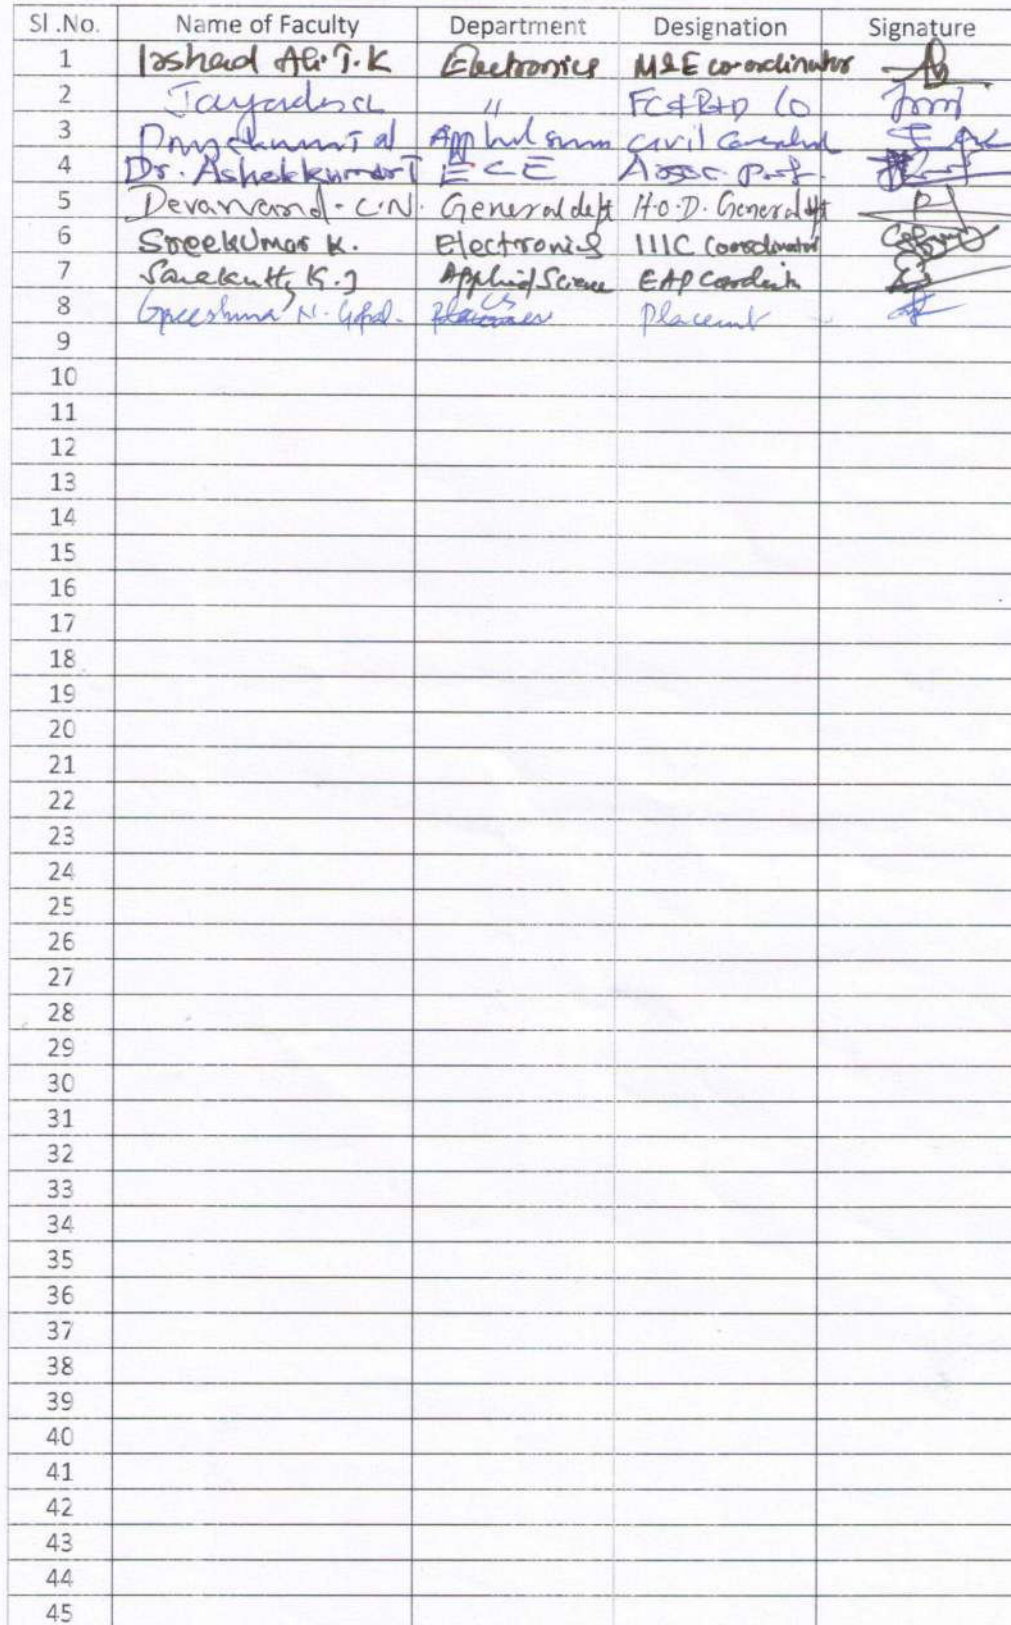 Sl.No. Name of Faculty Department Designation Signature
1 Irshad Ali. T. K Electronics M&E co-ordinator
2 Jayadeva " FC & R&D CO
3 Civil
4 Dr. Ashokkumar T ECE Assoc. Prof.
5 Devanand. C.N. General dept H.O.D. General dpt
6 Sreekumar K. Electronics IIIC Coordinator
7 K. J Applied Science EAP
8 Greeshma N. Gopal. CS Placement
9
10
11
12
13
14
15
16
17
18
19
20
21
22
23
24
25
26
27
28
29
30
31
32
33
34
35
36
37
38
39
40
41
42
43
44
45